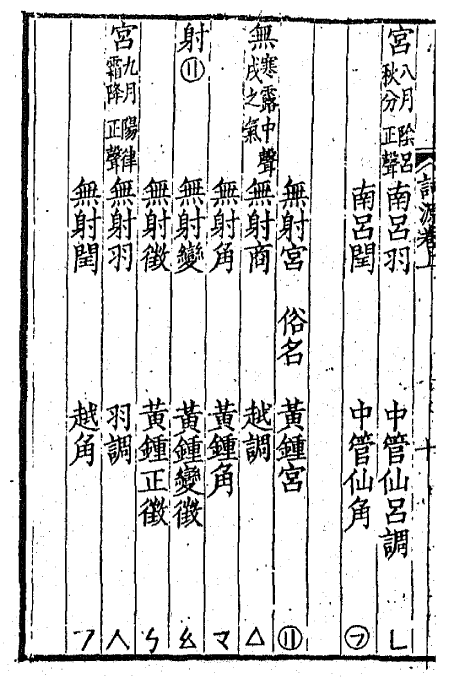 詞源卷上 十
宮 八月陰呂 秋分正聲 南呂羽 中管仙呂調 ㄴ
南呂閏 中管仙角 ㋫
無射宮 俗名 黃鍾宮 ⑪
無 寒露中聲 戌之氣 無射商 越調 △
無射角 黃鍾角 マ
射 ⑪ 無射變 黃鍾變徵 幺
無射徵 黃鍾正徵 ㄣ
宮 九月陽律 霜降正聲 無射羽 羽調 人
無射閏 越角 フ